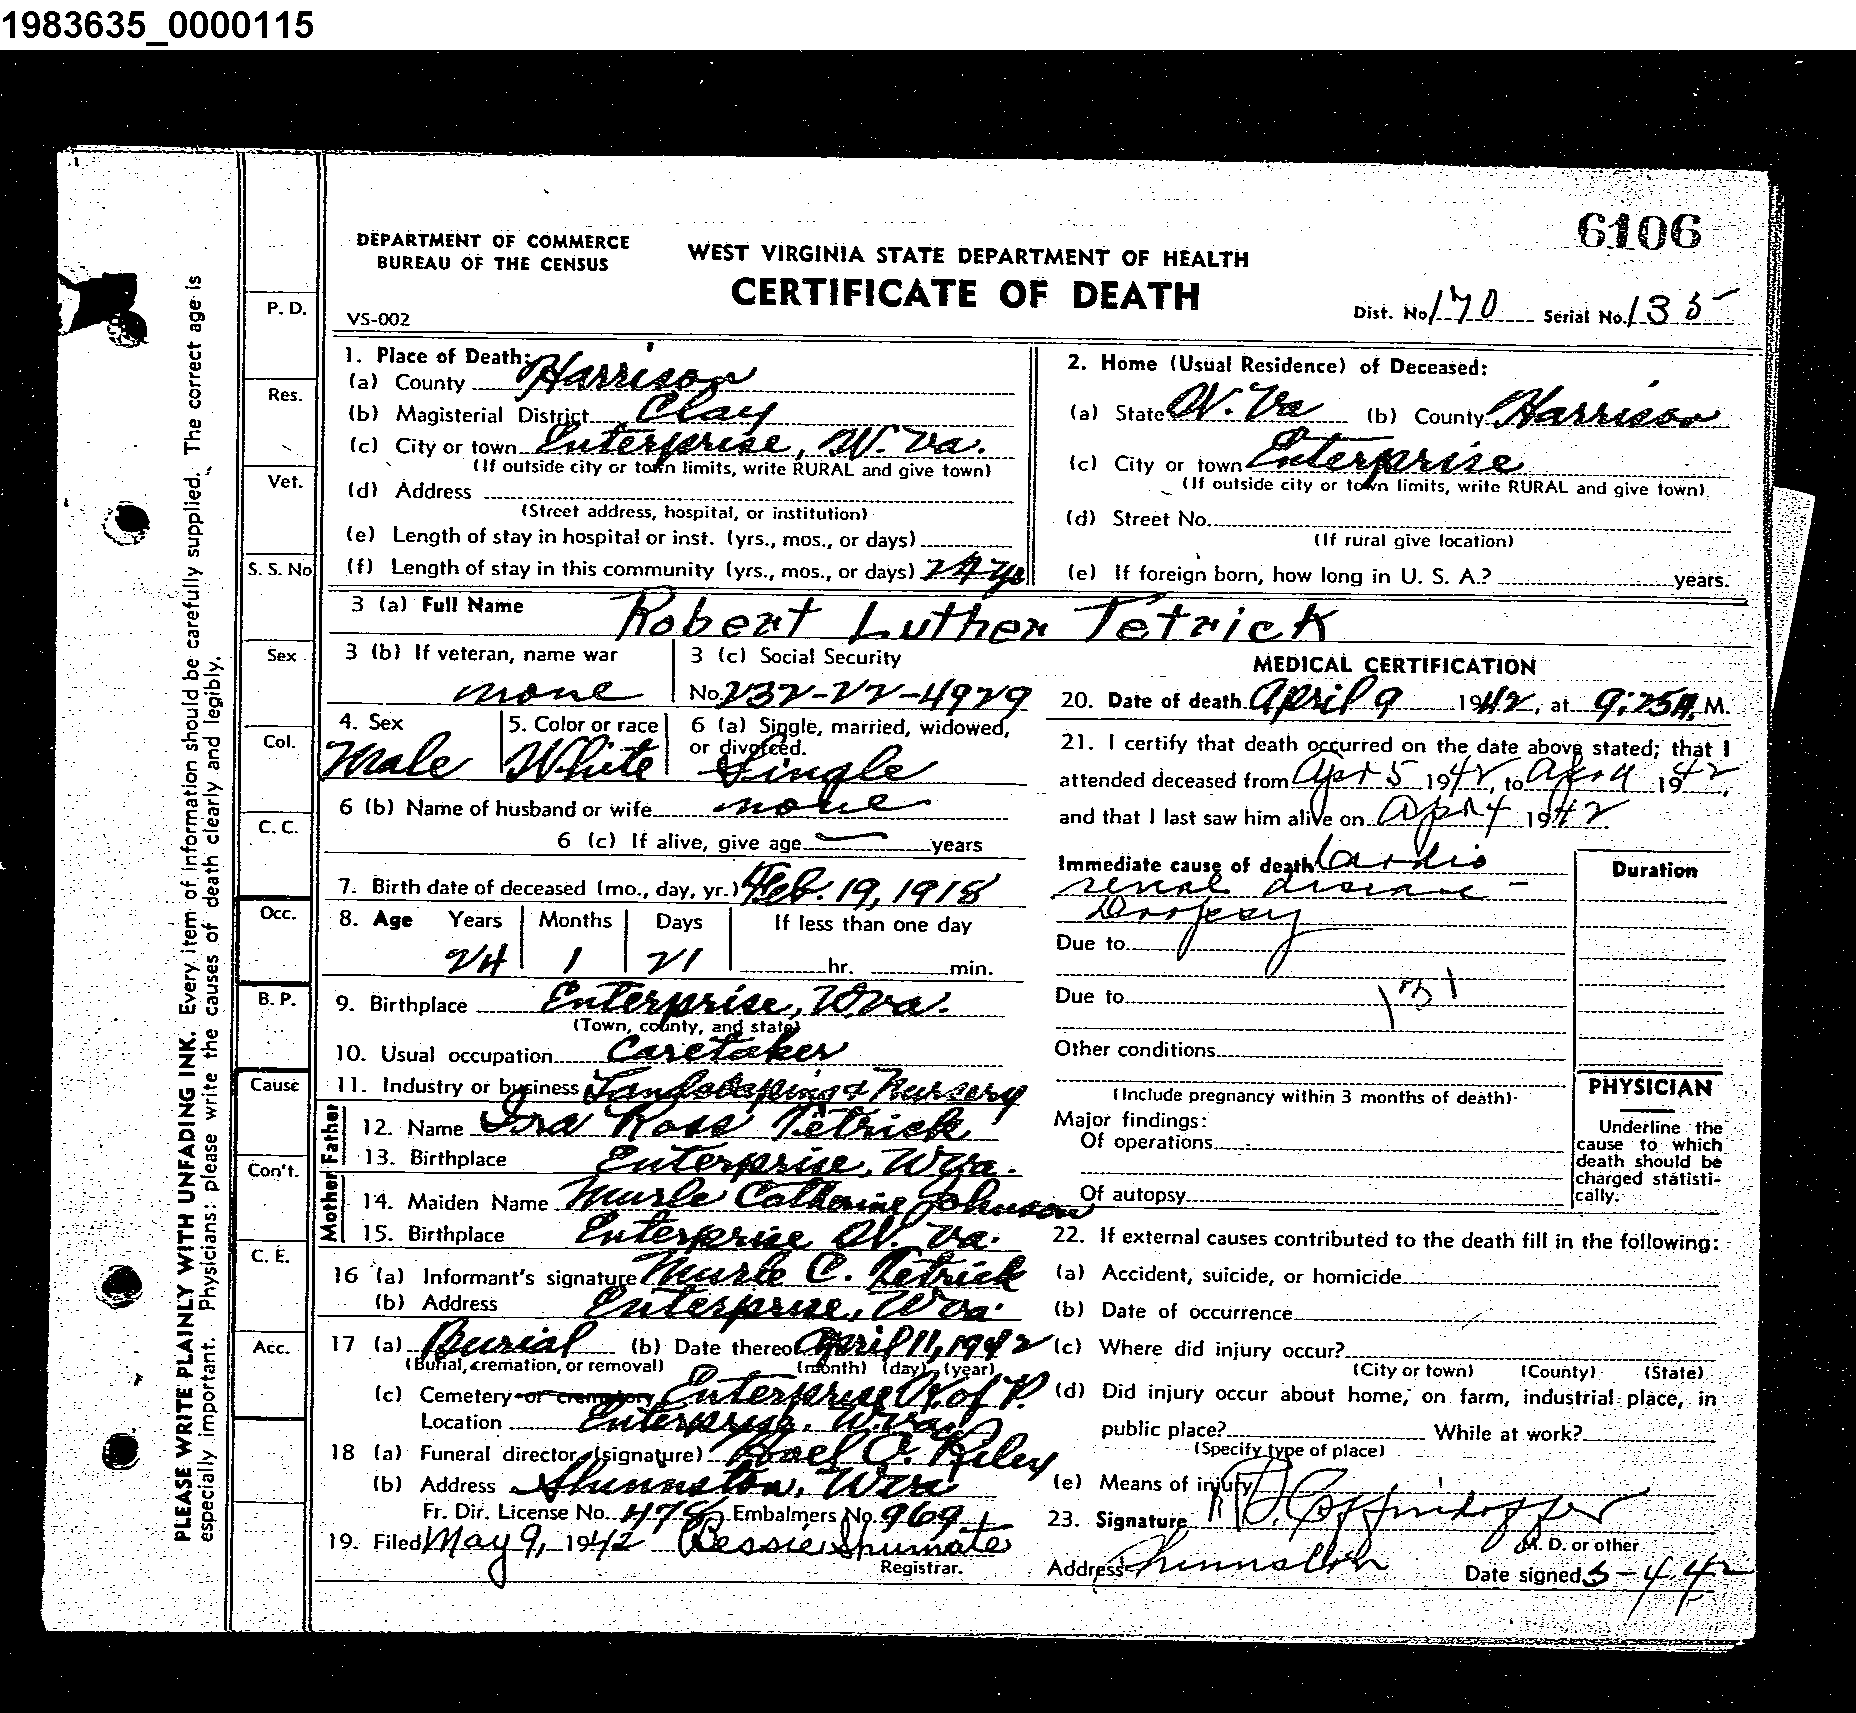 1983635_0000115
6106
DEPARTMENT OF COMMERCE
BUREAU OF THE CENSUS
WEST VIRGINIA STATE DEPARTMENT OF HEALTH
CERTIFICATE OF DEATH
VS-002
Dist. No. 170 Serial No. 135
PLEASE WRITE PLAINLY WITH UNFADING INK. Every item of information should be carefully supplied. The correct age is
especially important. Physicians: please write the causes of death clearly and legibly.
P. D.
Res.
Vet.
S. S. No
Sex
Col.
C. C.
Occ.
B. P.
Cause
Con't.
C. E.
Acc.
1. Place of Death:
(a) County Harrison
(b) Magisterial District Clay
(c) City or town Enterprise, W. Va.
(If outside city or town limits, write RURAL and give town)
(d) Address
(Street address, hospital, or institution)
(e) Length of stay in hospital or inst. (yrs., mos., or days)
(f) Length of stay in this community (yrs., mos., or days) 24 yrs
2. Home (Usual Residence) of Deceased:
(a) State W. Va (b) County Harrison
(c) City or town Enterprise
(If outside city or town limits, write RURAL and give town)
(d) Street No.
(If rural give location)
(e) If foreign born, how long in U. S. A.? years.
3 (a) Full Name Robert Luther Tetrick
3 (b) If veteran, name war
none
3 (c) Social Security
No. 232-22-4929
4. Sex
Male
5. Color or race
White
6 (a) Single, married, widowed,
or divorced.
Single
6 (b) Name of husband or wife none
6 (c) If alive, give age — years
7. Birth date of deceased (mo., day, yr.) Feb. 19, 1918
8. Age Years Months Days If less than one day
24 1 21 hr. min.
9. Birthplace Enterprise, W.va.
(Town, county, and state)
10. Usual occupation Caretaker
11. Industry or business Landscaping & Nursery
Father
12. Name Ira Ross Tetrick
13. Birthplace Enterprise, W.va.
Mother
14. Maiden Name Murle Catherine Johnson
15. Birthplace Enterprise W. Va.
16 (a) Informant's signature Murle C. Tetrick
(b) Address Enterprise, W.va.
17 (a) Burial (b) Date thereof April 11, 1942
(Burial, cremation, or removal) (month) (day) (year)
(c) Cemetery or crematory Enterprise K. of P.
Location Enterprise, W.va.
18 (a) Funeral director (signature) Hoel O. Riley
(b) Address Shinnston, W.va
Fr. Dir. License No. 478 Embalmers No. 969
19. Filed May 9, 1942 Bessie Shumate
Registrar.
MEDICAL CERTIFICATION
20. Date of death April 9 1942, at 9:25 A. M.
21. I certify that death occurred on the date above stated; that I
attended deceased from Apr 5 1942, to Apr 9 1942,
and that I last saw him alive on Apr 4 1942
Immediate cause of death Cardio
renal disease -
Dropsy
Due to
Due to 131
Other conditions
(Include pregnancy within 3 months of death)
Major findings:
Of operations
Of autopsy
Duration
PHYSICIAN
Underline the
cause to which
death should be
charged statisti-
cally.
22. If external causes contributed to the death fill in the following:
(a) Accident, suicide, or homicide
(b) Date of occurrence
(c) Where did injury occur?
(City or town) (County) (State)
(d) Did injury occur about home, on farm, industrial place, in
public place? While at work?
(Specify type of place)
(e) Means of injury
23. Signature
M. D. or other
Address Shinnston Date signed 5-4 42